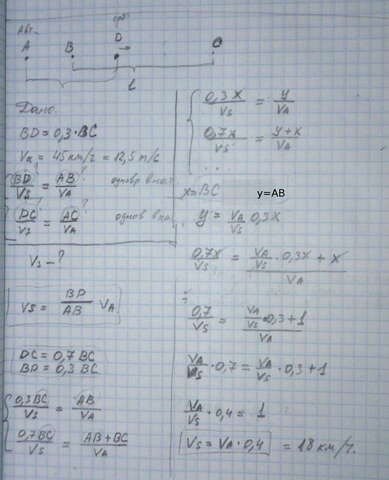 Авт.
A B D C
L
Дано.
BD = 0,3 · BC
V_A = 45 км/ч = 12,5 m/c
BD/Vs = AB/V_A одновр
DC/Vs = AC/V_A однов
Vs – ?
Vs = BD/AB V_A
DC = 0,7 BC
BD = 0,3 BC
0,3BC/Vs = AB/V_A
0,7BC/Vs = AB+BC/V_A
0,3x/Vs = y/V_A
0,7x/Vs = y+x/V_A
x=BC y=AB
y = V_A/Vs 0,3x
0,7x/Vs = V_A/Vs · 0,3x + x / V_A
0,7/Vs = V_A/Vs · 0,3+1 / V_A
V_A/Vs · 0,7 = V_A/Vs · 0,3+1
V_A/Vs · 0,4 = 1
Vs = V_A · 0,4 = 18 км/ч.